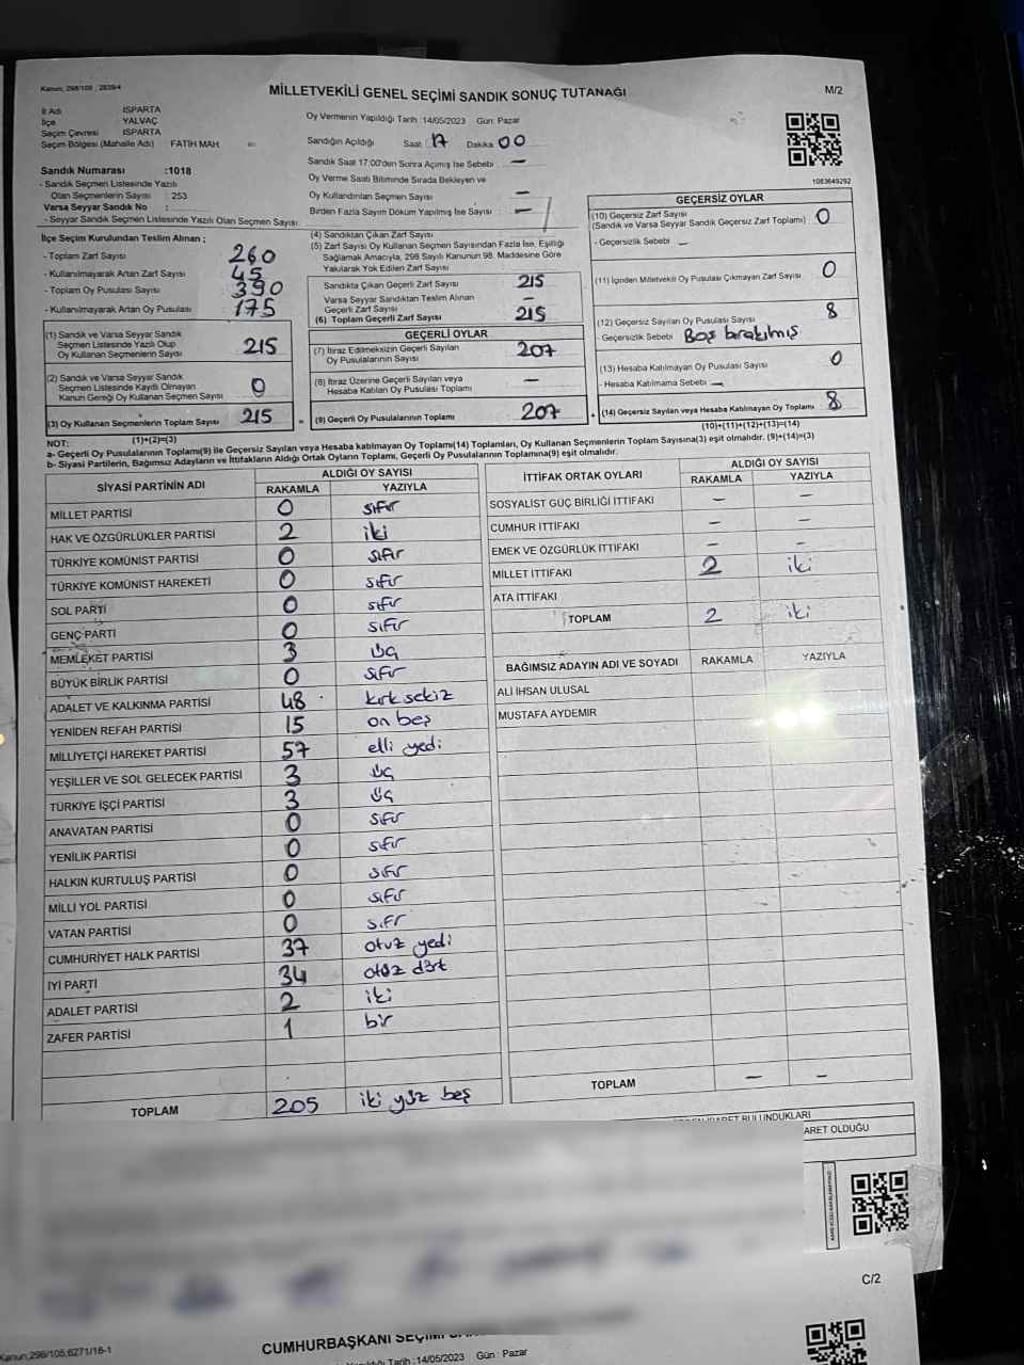 Kanun; 298/105 ; 2839/4
MİLLETVEKİLİ GENEL SEÇİMİ SANDIK SONUÇ TUTANAĞI
M/2
İl Adı ISPARTA
İlçe YALVAÇ
Seçim Çevresi ISPARTA
Seçim Bölgesi (Mahalle Adı) FATİH MAH
Oy Vermenin Yapıldığı Tarih :14/05/2023 Gün: Pazar
Sandığın Açıldığı Saat 17 Dakika 00
Sandık Saat 17:00'den Sonra Açılmış İse Sebebi : —
Oy Verme Saati Bitiminde Sırada Bekleyen ve
Oy Kullandırılan Seçmen Sayısı : —
Birden Fazla Sayım Döküm Yapılmış İse Sayısı : —
Sandık Numarası :1018
- Sandık Seçmen Listesinde Yazılı
Olan Seçmenlerin Sayısı : 253
Varsa Seyyar Sandık No :
- Seyyar Sandık Seçmen Listesinde Yazılı Olan Seçmen Sayısı:
1083649292
İlçe Seçim Kurulundan Teslim Alınan ;
- Toplam Zarf Sayısı 260
- Kullanılmayarak Artan Zarf Sayısı 45
- Toplam Oy Pusulası Sayısı 390
- Kullanılmayarak Artan Oy Pusulası 175
(1) Sandık ve Varsa Seyyar Sandık
Seçmen Listesinde Yazılı Olup
Oy Kullanan Seçmenlerin Sayısı 215
(2) Sandık ve Varsa Seyyar Sandık
Seçmen Listesinde Kayıtlı Olmayan
Kanun Gereği Oy Kullanan Seçmen Sayısı 0
(3) Oy Kullanan Seçmenlerin Toplam Sayısı 215
(1)+(2)=(3)
(4) Sandıktan Çıkan Zarf Sayısı
(5) Zarf Sayısı Oy Kullanan Seçmen Sayısından Fazla İse, Eşitliği
Sağlamak Amacıyla, 298 Sayılı Kanunun 98. Maddesine Göre
Yakılarak Yok Edilen Zarf Sayısı
Sandıkta Çıkan Geçerli Zarf Sayısı 215
Varsa Seyyar Sandıktan Teslim Alınan
Geçerli Zarf Sayısı —
(6) Toplam Geçerli Zarf Sayısı 215
GEÇERLİ OYLAR
(7) İtiraz Edilmeksizin Geçerli Sayılan
Oy Pusulalarının Sayısı 207
(8) İtiraz Üzerine Geçerli Sayılan veya
Hesaba Katılan Oy Pusulası Toplamı —
= (9) Geçerli Oy Pusulalarının Toplamı 207 +
GEÇERSİZ OYLAR
(10) Geçersiz Zarf Sayısı
(Sandık ve Varsa Seyyar Sandık Geçersiz Zarf Toplamı) 0
- Geçersizlik Sebebi —
(11) İçinden Milletvekili Oy Pusulası Çıkmayan Zarf Sayısı 0
(12) Geçersiz Sayılan Oy Pusulası Sayısı 8
- Geçersizlik Sebebi Boş bırakılmış
(13) Hesaba Katılmayan Oy Pusulası Sayısı 0
- Hesaba Katılmama Sebebi —
(14) Geçersiz Sayılan veya Hesaba Katılmayan Oy Toplamı 8
(10)+(11)+(12)+(13)=(14)
NOT:
a- Geçerli Oy Pusulalarının Toplamı(9) ile Geçersiz Sayılan veya Hesaba katılmayan Oy Toplamı(14) Toplamları, Oy Kullanan Seçmenlerin Toplam Sayısına(3) eşit olmalıdır. (9)+(14)=(3)
b- Siyasi Partilerin, Bağımsız Adayların ve İttifakların Aldığı Ortak Oyların Toplamı, Geçerli Oy Pusulalarının Toplamına(9) eşit olmalıdır.
SİYASİ PARTİNİN ADI ALDIĞI OY SAYISI
RAKAMLA YAZIYLA
MİLLET PARTİSİ 0 sıfır
HAK VE ÖZGÜRLÜKLER PARTİSİ 2 iki
TÜRKİYE KOMÜNİST PARTİSİ 0 sıfır
TÜRKİYE KOMÜNİST HAREKETİ 0 sıfır
SOL PARTİ 0 sıfır
GENÇ PARTİ 0 sıfır
MEMLEKET PARTİSİ 3 üç
BÜYÜK BİRLİK PARTİSİ 0 sıfır
ADALET VE KALKINMA PARTİSİ 48 kırk sekiz
YENİDEN REFAH PARTİSİ 15 on beş
MİLLİYETÇİ HAREKET PARTİSİ 57 elli yedi
YEŞİLLER VE SOL GELECEK PARTİSİ 3 üç
TÜRKİYE İŞÇİ PARTİSİ 3 üç
ANAVATAN PARTİSİ 0 sıfır
YENİLİK PARTİSİ 0 sıfır
HALKIN KURTULUŞ PARTİSİ 0 sıfır
MİLLİ YOL PARTİSİ 0 sıfır
VATAN PARTİSİ 0 sıfır
CUMHURİYET HALK PARTİSİ 37 otuz yedi
İYİ PARTİ 34 otuz dört
ADALET PARTİSİ 2 iki
ZAFER PARTİSİ 1 bir
TOPLAM 205 iki yüz beş
İTTİFAK ORTAK OYLARI ALDIĞI OY SAYISI
RAKAMLA YAZIYLA
SOSYALİST GÜÇ BİRLİĞİ İTTİFAKI — —
CUMHUR İTTİFAKI — —
EMEK VE ÖZGÜRLÜK İTTİFAKI — —
MİLLET İTTİFAKI 2 iki
ATA İTTİFAKI
TOPLAM 2 iki
BAĞIMSIZ ADAYIN ADI VE SOYADI RAKAMLA YAZIYLA
ALİ İHSAN ULUSAL
MUSTAFA AYDEMİR
TOPLAM — —
BULUNDUKLARI
ARET OLDUĞU
C/2
Kanun;298/105;6271/16-1
CUMHURBAŞKANI SEÇİMİ
Tarih :14/05/2023 Gün : Pazar